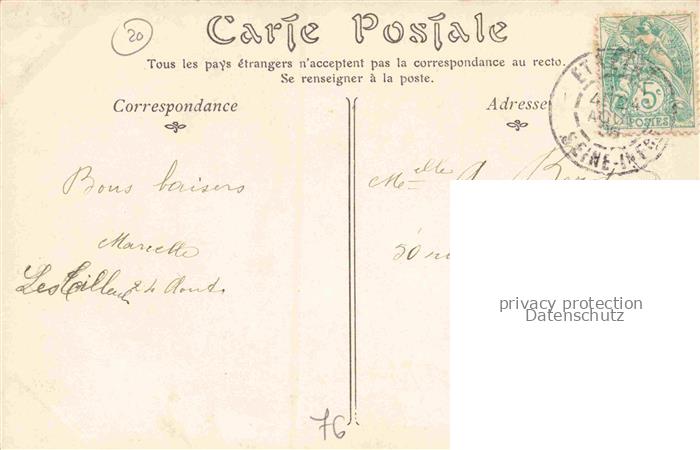 20
Carte Postale
Tous les pays étrangers n'acceptent pas la correspondance au recto.
Se renseigner à la poste.
Correspondance
Adresse
5c
POSTES
AOU
SEINE-INF
Bons baisers
Marcelle
Les Tilleuls 24 Aout
Melle
50
76
privacy protection
Datenschutz